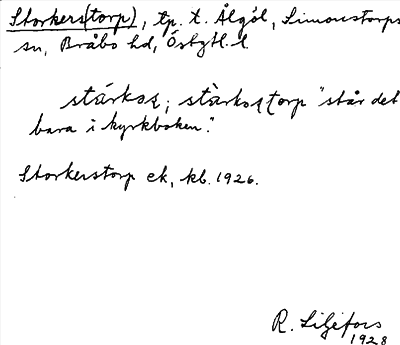 Storkers(torp), tp. t. Ålgöl, Simonstorps
sn, Bråbo hd, Östgtl. l
stårkoʂ; stàrkoʂtorp "står det
bara i kyrkboken".
Storkerstorp ek, kb. 1926.
R. Liljefors
1928